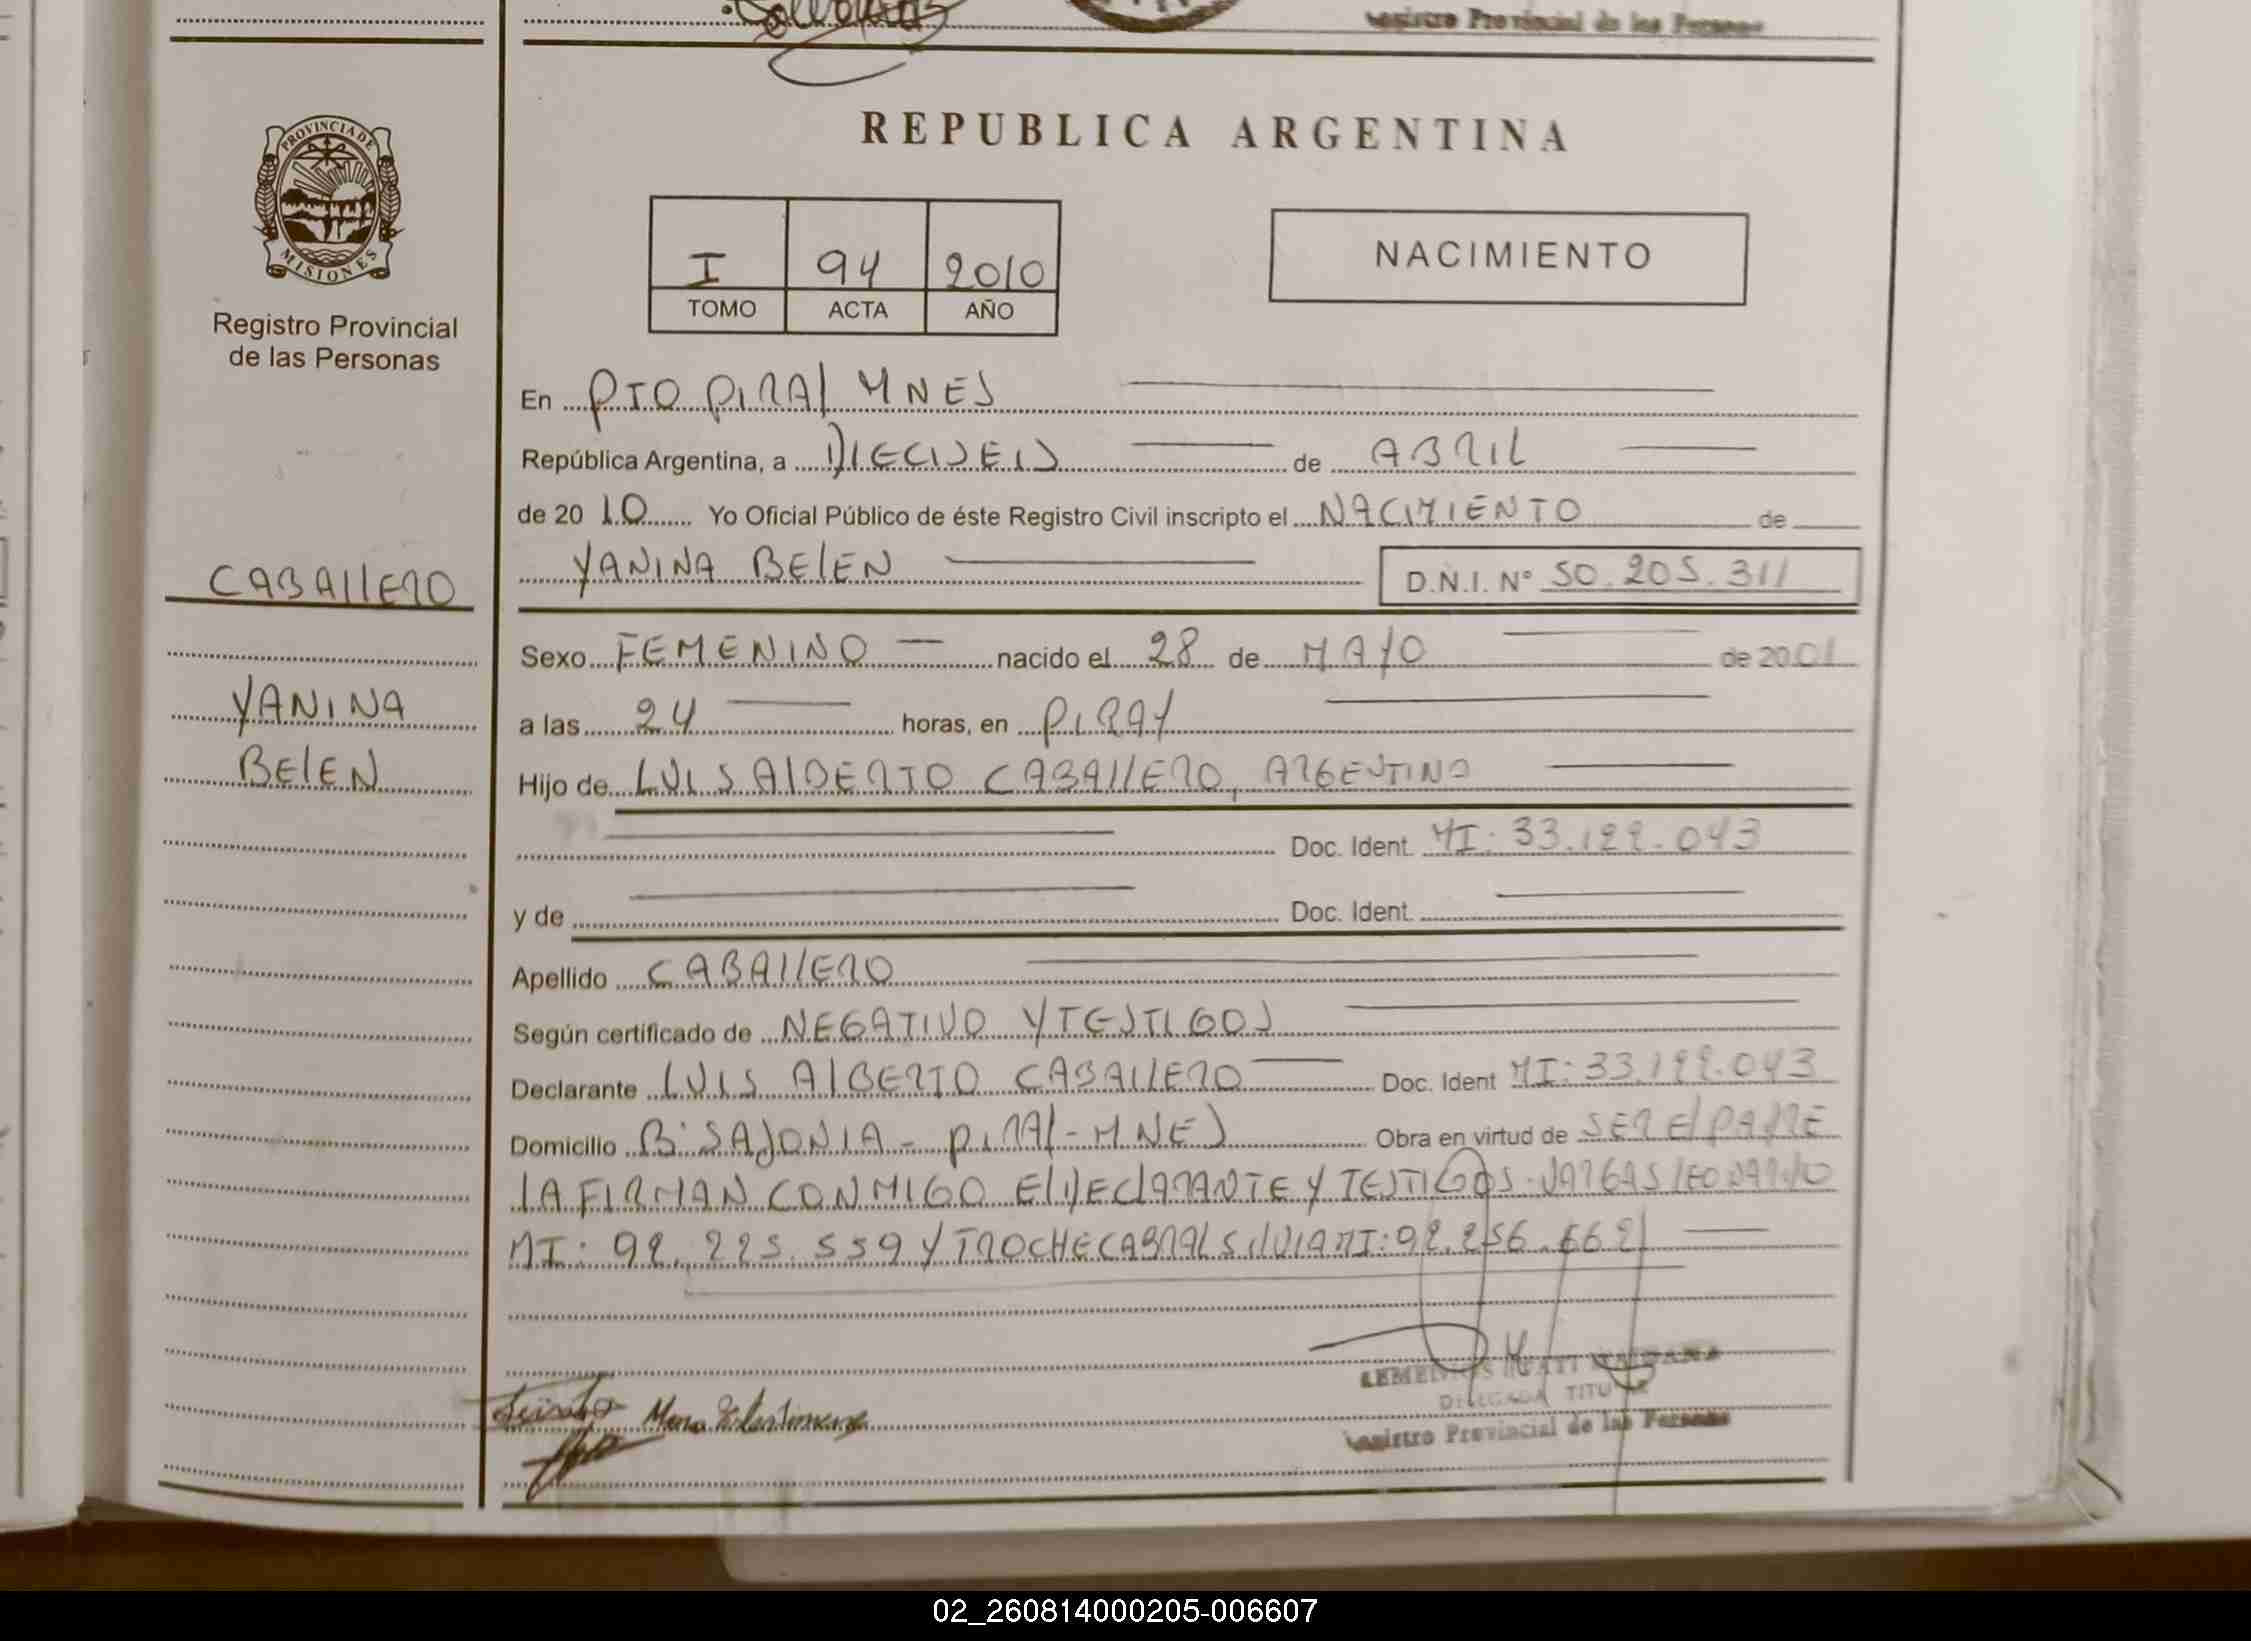 Registro Provincial de las Personas
REPUBLICA ARGENTINA
PROVINCIA DE
MISIONES
Registro Provincial
de las Personas
I 94 2010
TOMO ACTA AÑO
NACIMIENTO
En PTO PIRAY MNES
República Argentina, a DIECISEIS de ABRIL
de 20 10 Yo Oficial Público de éste Registro Civil inscripto el NACIMIENTO de
YANINA BELEN D.N.I. Nº 50.205.311
CABALLERO
YANINA
BELEN
Sexo FEMENINO nacido el 28 de MAYO de 2001
a las 24 horas, en PIRAY
Hijo de LUIS ALBERTO CABALLERO, ARGENTINO
Doc. Ident. MI: 33.199.043
y de Doc. Ident.
Apellido CABALLERO
Según certificado de NEGATIVO Y TESTIGOS
Declarante LUIS ALBERTO CABALLERO Doc. Ident MI: 33.199.043
Domicilio Bº SAJONIA - PIRAY - MNES Obra en virtud de SER EL PADRE
LA FIRMAN CONMIGO EL DECLARANTE Y TESTIGOS. VARGAS LEONARDO
MI: 92.225.559 Y TROCHE CABRAL SILVIA MI: 92.256.662
DELEGADA TITULAR
Registro Provincial de las Personas
02_260814000205-006607